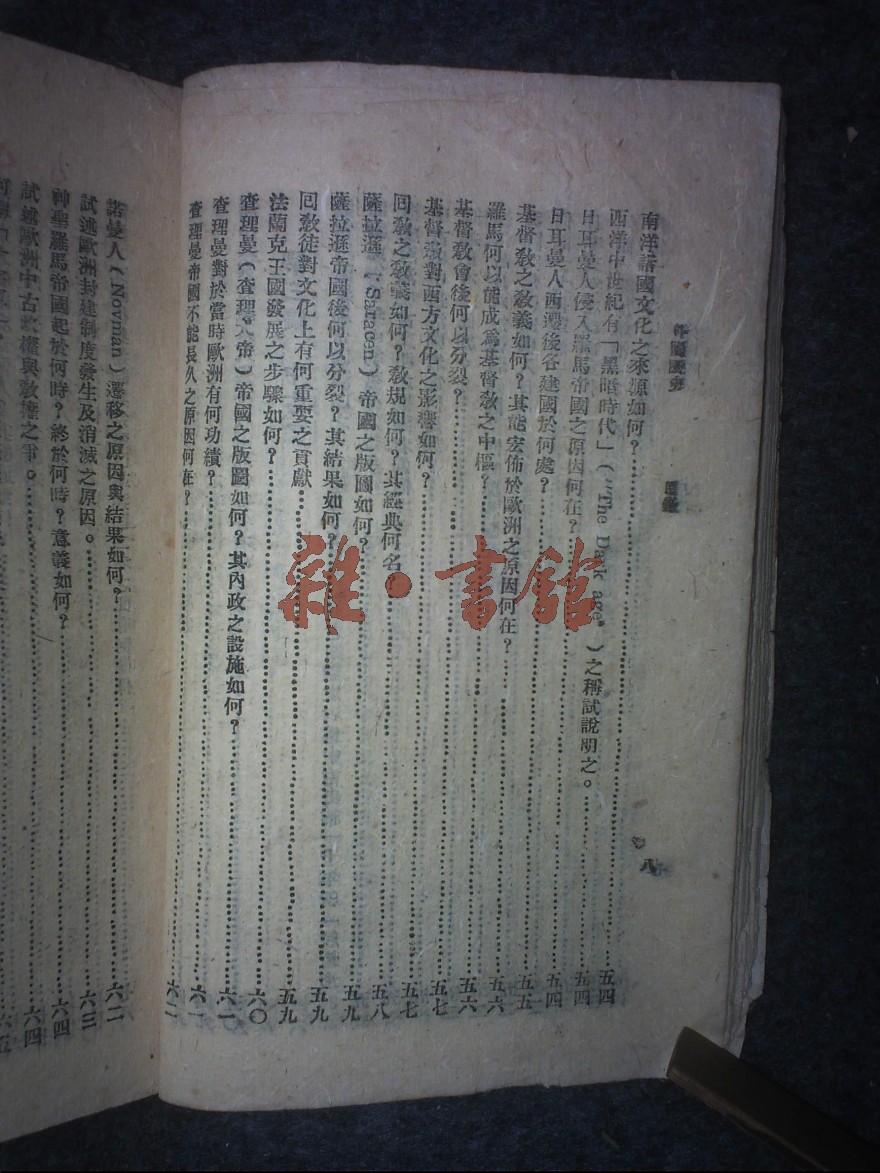 外國歷史
目錄
八
南洋諸國文化之來源如何？……五四
西洋中世紀有「黑暗時代」（"The Dark age"）之稱試說明之。……五四
日耳曼人侵入羅馬帝國之原因何在？……五四
日耳曼人西遷後各建國於何處？……五五
基督教之教義如何？其能宏佈於歐洲之原因何在？……五六
羅馬何以能成爲基督教之中樞？……五六
基督教會後何以分裂？……五七
基督教對西方文化之影響如何？……五七
回教之教義如何？教規如何？其經典何名？……五八
薩拉遜（Saracen）帝國之版圖如何？……五九
薩拉遜帝國後何以分裂？其結果如何？……五九
回教徒對文化上有何重要之貢獻……五九
法蘭克王國發展之步驟如何？……六〇
查理曼（查理大帝）帝國之版圖如何？其內政之設施如何？……六一
查理曼對於當時歐洲有何功績？……六一
查理曼帝國不能長久之原因何在？……六二
諾曼人（Novman）遷移之原因與結果如何？……六二
試述歐洲封建制度發生及消滅之原因。……六三
神聖羅馬帝國起於何時？終於何時？意義如何？……六四
試述歐洲中古政權與教權之爭。……六四
六五
雜·書館